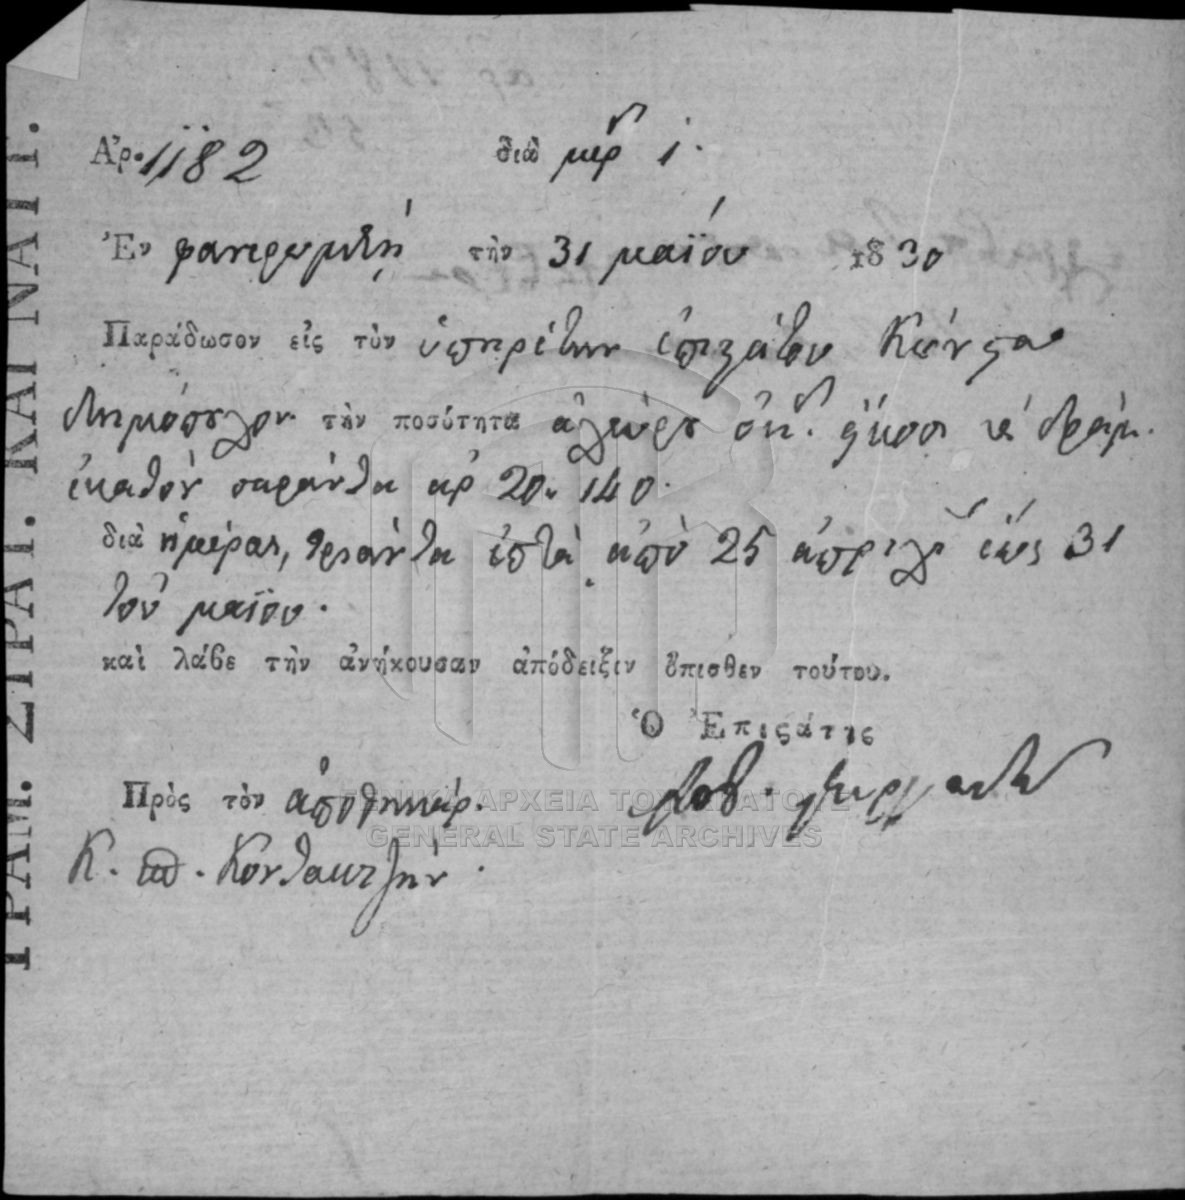 ΓΡΑΜ. ΣΤΡΑΤ. ΚΑΙ ΝΑΥΤ.
Ἀρ. 1182 διὰ μερ 1.
Ἐν φανερωμένῃ τὴν 31 μαΐου 1830
Παράδωσον εἰς τὸν ὑπηρέτην ἐπιστάτου Κώνστα
δημόπουλον τὴν ποσότητα ἀλεύρου ὀκ. ἤκοσι καὶ δράμ.
ἑκατὸν σαράντα αρ 20. 140.
διὰ ἡμέρας, τριάντα ἑπτὰ ἀπὸ 25 ἀπριλ ἕως 31
τοῦ μαΐου.
καὶ λάβε τὴν ἀνήκουσαν ἀπόδειξιν ὄπισθεν τούτου.
Ὁ Ἐπιστάτης
Πρὸς τὸν ἀποθηκάρ.
Κ. Κονταξζὴν.
ΓΕΝΙΚΑ ΑΡΧΕΙΑ ΤΟΥ ΚΡΑΤΟΥΣ
GENERAL STATE ARCHIVES